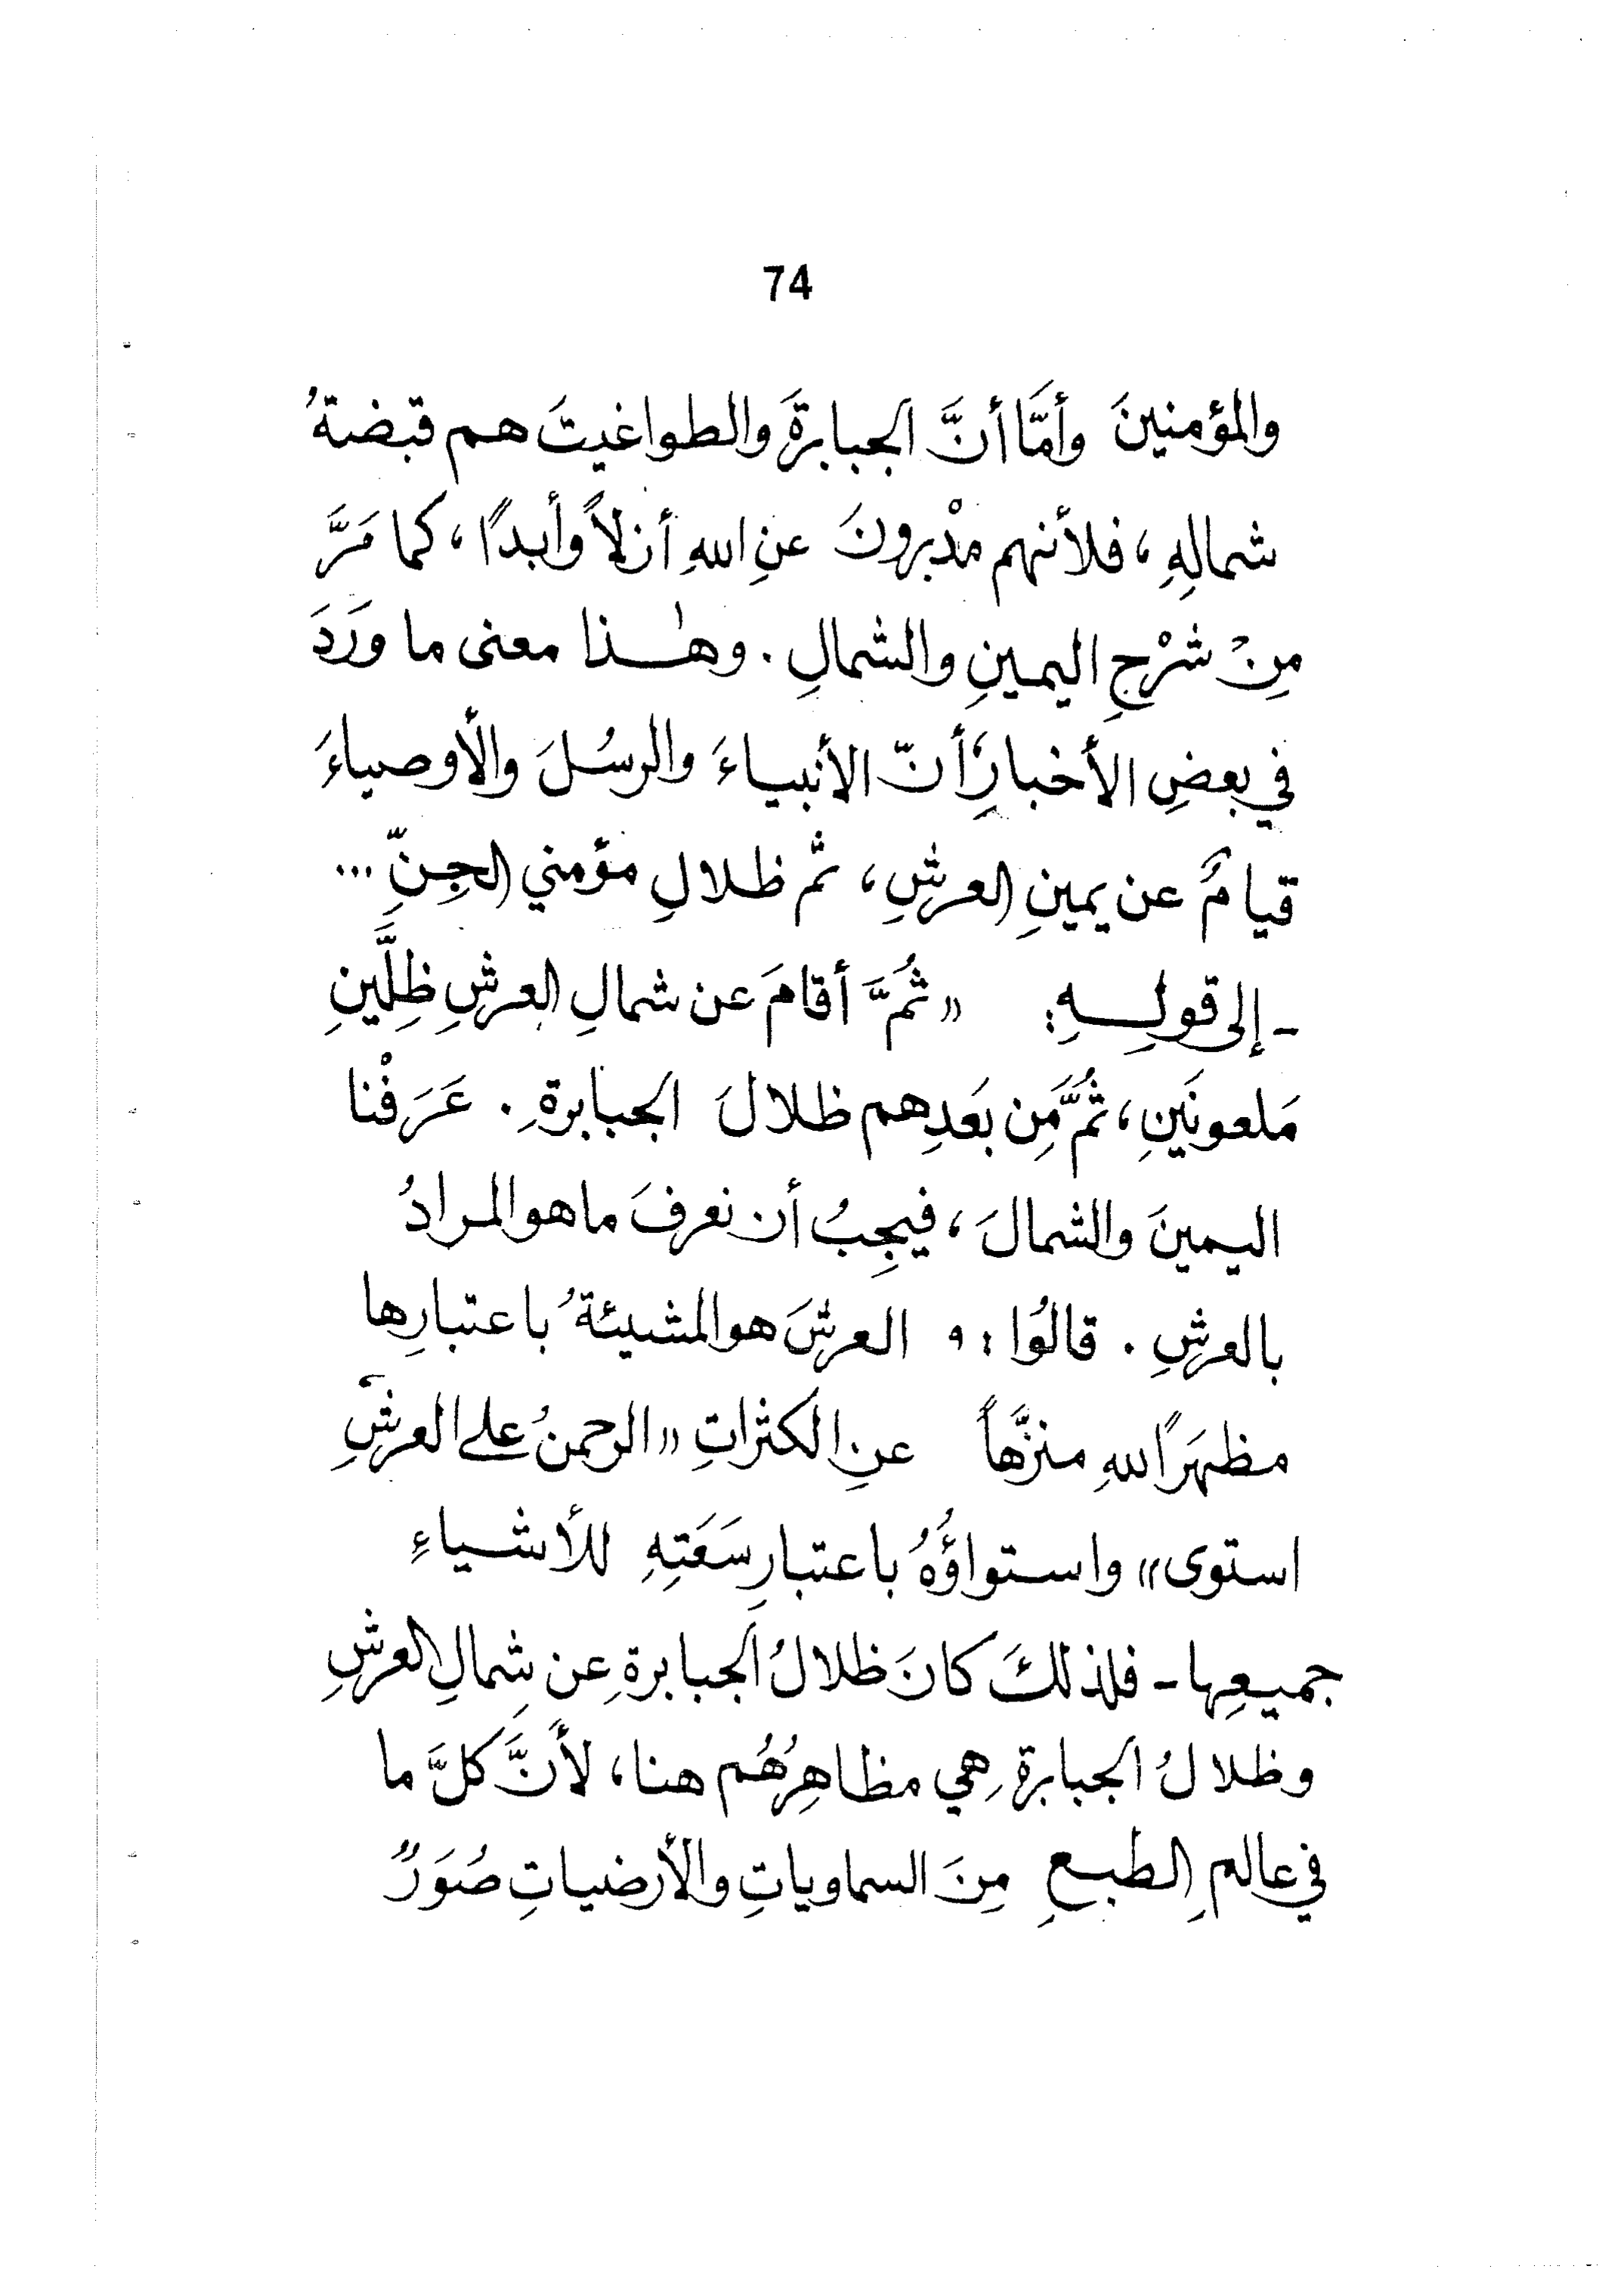 74
والمؤمنينَ وأمَّا أنَّ الجبابرةَ والطواغيتَ هم قبضةُ
شمالِهِ ، فلأنهم مدْبرونَ عنِ اللهِ أزلاً وأبداً ، كما مَرَّ
مِنْ شرْحِ اليمينِ والشمالِ . وهٰذا معنى ما وَرَدَ
في بعضِ الأخبارِ، أنّ الأنبياءَ والرسُلَ والأوصياءَ
قيامٌ عن يمينِ العرشِ ، ثمّ ظلالِ مؤمني الجِنِّ ...
ـ إلى قولِهِ: «ثُمَّ أقامَ عن شمالِ العرشِ ظِلَّينِ
مَلعونَينِ ، ثُمَّ مِن بَعَدِهم ظلالَ الجبابرةِ . عَرَفْنا
اليمينَ والشمالَ ، فيجِبُ أن نعرفَ ما هو المرادُ
بالعرشِ . قالُوا : و العرشَ هو المشيئةُ باعتبارِها
مظهَراً للهِ منزَّهاً عنِ الكثراتِ «الرحمنُ على العرشِ
استوى» واستواؤُهُ باعتبارِ سَعَتِهِ للأشياءِ
جميعِها ـ فلذلكَ كانَ ظلالُ الجبابرةِ عن شِمالِ العرشِ
وظلالُ الجبابرةِ هي مظاهِرُهُم هنا ، لأنَّ كلَّ ما
في عالمِ الطبعِ مِنَ السماوياتِ والأرضياتِ صُوَرٌ